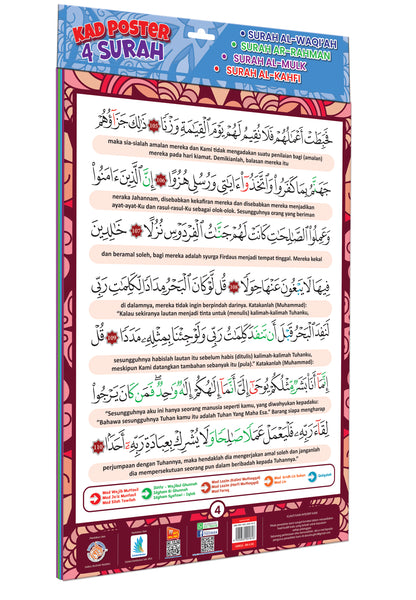 KAD POSTER
4 SURAH
• SURAH AL-WAQI'AH
• SURAH AR-RAHMAN
• SURAH AL-MULK
• SURAH AL-KAHFI
فَحَبِطَتْ أَعْمَٰلُهُمْ فَلَا نُقِيمُ لَهُمْ يَوْمَ ٱلْقِيَٰمَةِ وَزْنًا ١٠٥ ذَٰلِكَ جَزَآؤُهُمْ
maka sia-sialah amalan mereka dan Kami tidak mengadakan suatu penilaian bagi (amalan)
mereka pada hari kiamat. Demikianlah, balasan mereka itu
جَهَنَّمُ بِمَا كَفَرُوا۟ وَٱتَّخَذُوٓا۟ ءَايَٰتِى وَرُسُلِى هُزُوًا ١٠٦ إِنَّ ٱلَّذِينَ ءَامَنُوا۟
neraka Jahannam, disebabkan kekafiran mereka dan disebabkan mereka menjadikan
ayat-ayat-Ku dan rasul-rasul-Ku sebagai olok-olok. Sesungguhnya orang yang beriman
وَعَمِلُوا۟ ٱلصَّٰلِحَٰتِ كَانَتْ لَهُمْ جَنَّٰتُ ٱلْفِرْدَوْسِ نُزُلًا ١٠٧ خَٰلِدِينَ
dan beramal soleh, bagi mereka adalah syurga Firdaus menjadi tempat tinggal. Mereka kekal
فِيهَا لَا يَبْغُونَ عَنْهَا حِوَلًا ١٠٨ قُل لَّوْ كَانَ ٱلْبَحْرُ مِدَادًا لِّكَلِمَٰتِ رَبِّى
di dalamnya, mereka tidak ingin berpindah darinya. Katakanlah (Muhammad):
"Kalau sekiranya lautan menjadi tinta untuk (menulis) kalimah-kalimah Tuhanku,
لَنَفِدَ ٱلْبَحْرُ قَبْلَ أَن تَنفَدَ كَلِمَٰتُ رَبِّى وَلَوْ جِئْنَا بِمِثْلِهِۦ مَدَدًا ١٠٩ قُلْ
sesungguhnya habislah lautan itu sebelum habis (ditulis) kalimah-kalimah Tuhanku,
meskipun Kami datangkan tambahan sebanyak itu (pula)." Katakanlah (Muhammad):
إِنَّمَآ أَنَا۠ بَشَرٌ مِّثْلُكُمْ يُوحَىٰٓ إِلَىَّ أَنَّمَآ إِلَٰهُكُمْ إِلَٰهٌ وَٰحِدٌ فَمَن كَانَ يَرْجُوا۟
"Sesungguhnya aku ini hanya seorang manusia seperti kamu, yang diwahyukan kepadaku:
"Bahawa sesungguhnya Tuhan kamu itu adalah Tuhan Yang Maha Esa." Barang siapa mengharap
لِقَآءَ رَبِّهِۦ فَلْيَعْمَلْ عَمَلًا صَٰلِحًا وَلَا يُشْرِكْ بِعِبَادَةِ رَبِّهِۦٓ أَحَدًۢا ١١٠
perjumpaan dengan Tuhannya, maka hendaklah dia mengerjakan amal soleh dan janganlah
dia mempersekutukan seorang pun dalam beribadah kepada Tuhannya."
4